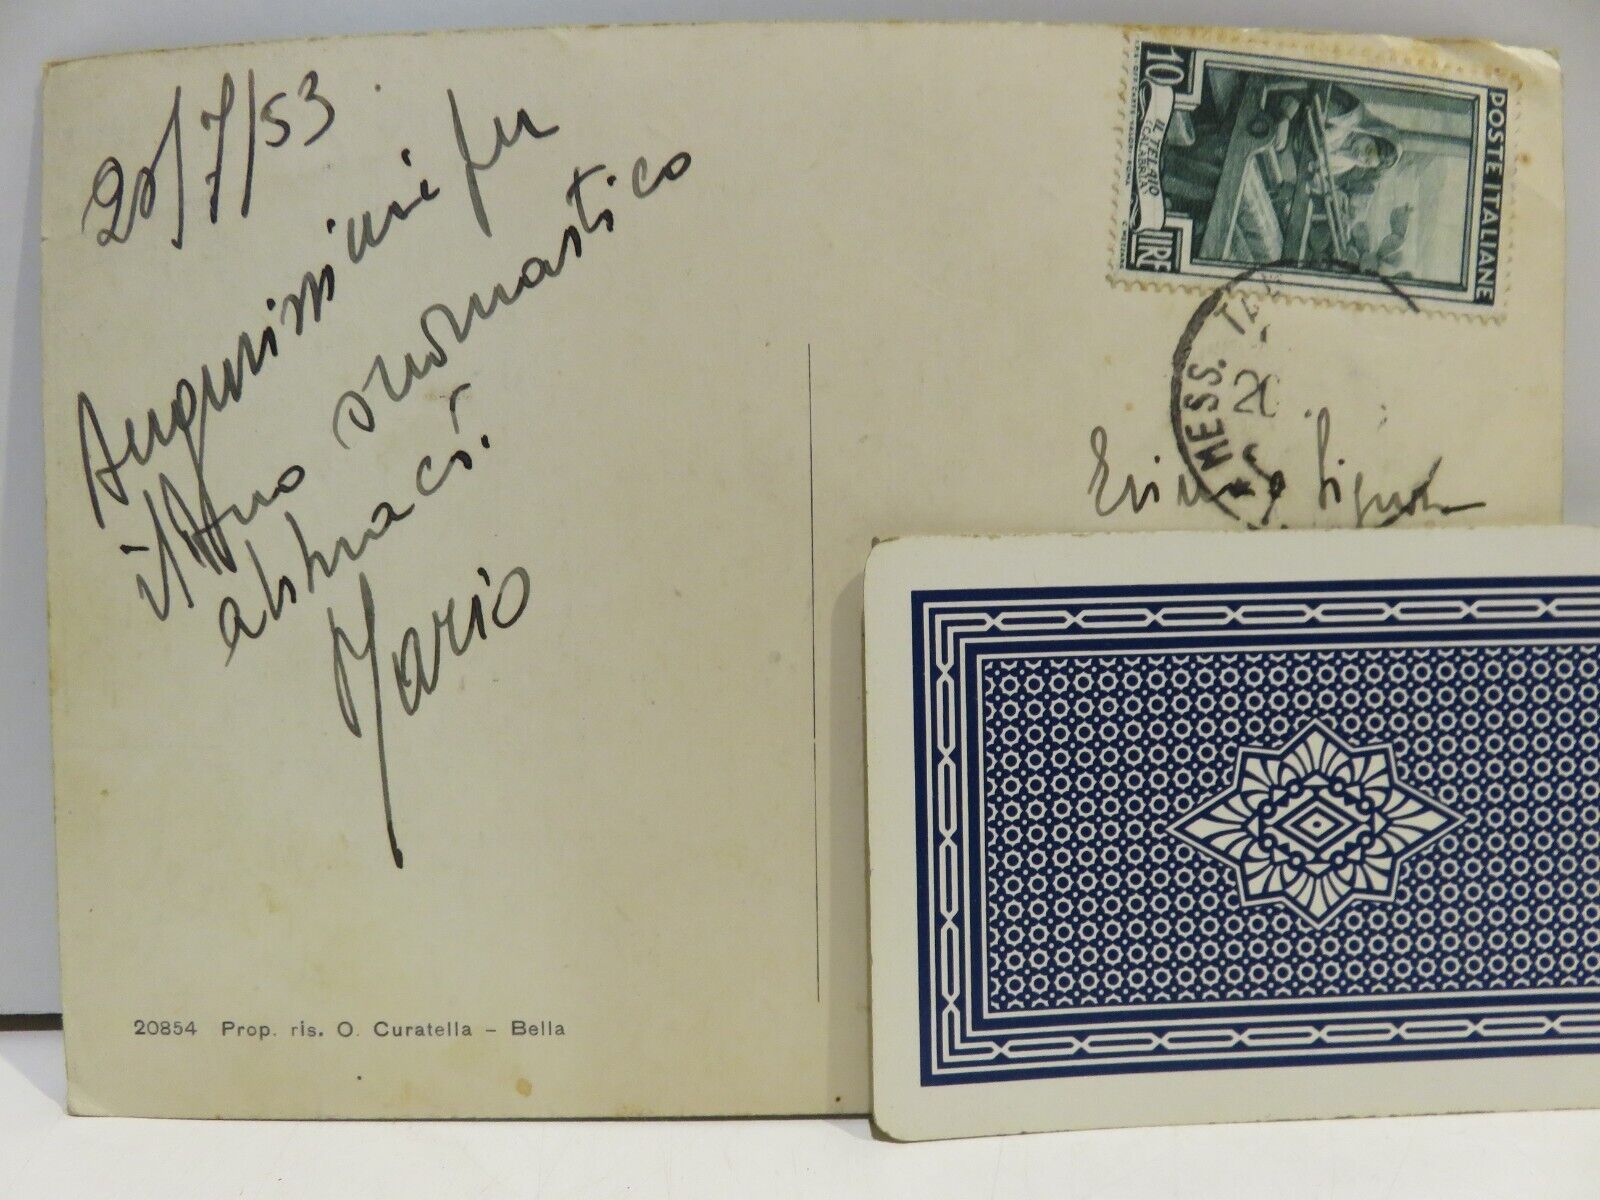 20/7/53
Augurissimi per
il tuo onomastico
abbracci.
Mario
20854 Prop. ris. O. Curatella - Bella
10
LIRE
IL TELAIO
(CALABRIA)
POSTE ITALIANE
MESS.
20